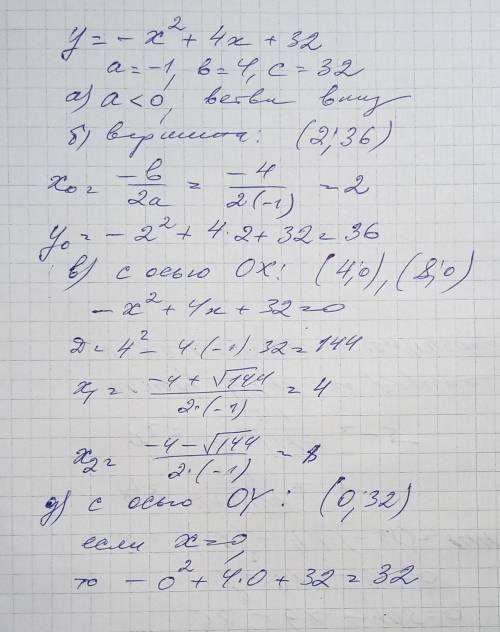 y = - x² + 4x + 32
a = -1, в = 4, c = 32
а) a < 0, ветви вниз
б) вершина: (2; 36)
x₀ = -в/2a = -4/2(-1) = 2
y₀ = - 2² + 4·2 + 32 = 36
в) с осью OX: (4; 0), (8; 0)
- x² + 4x + 32 = 0
Д = 4² - 4·(-1)·32 = 144
x₁ = -4 + √144/2·(-1) = 4
x₂ = -4 - √144/2·(-1) = 8
д) с осью OY: (0; 32)
если x = 0,
то - 0² + 4·0 + 32 = 32